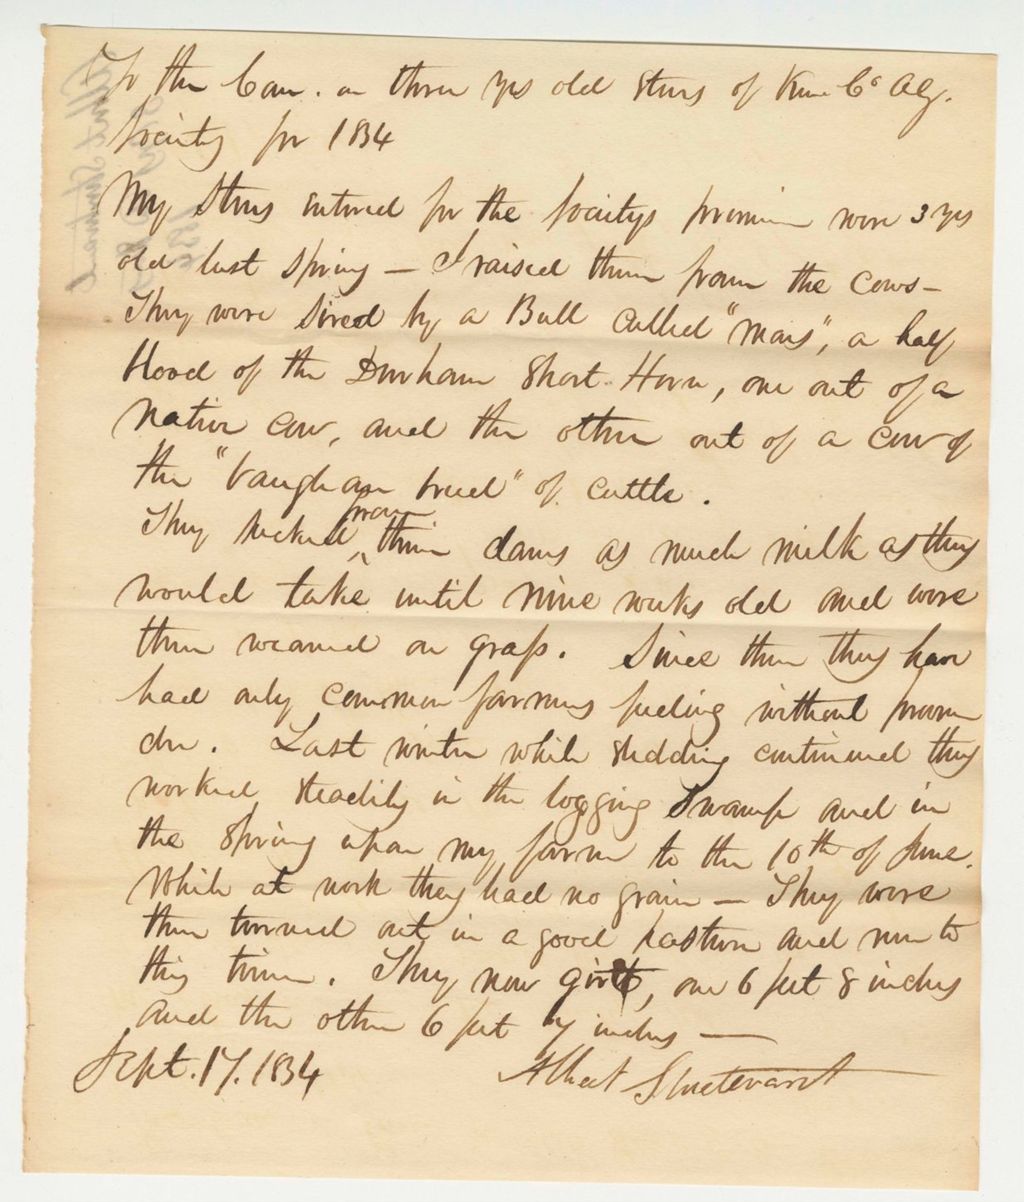 To the Com. on three yrs old Steers of Ken Co Ag.
Society for 1834
My Steers entered for the Societys premium were 3 yrs
old last Spring — I raised them from the cows —
They were Sired by a Bull Called "Mars", a half
blood of the Durham Short-Horn, one out of a
Native Cow, and the other out of a cow of
the "Vaughan breed" of Cattle.
They sucked from their dams as much milk as they
would take until Nine weeks old and were
then weaned on grass. Since then they have
had only common farmers feeding without proven
der. Last winter while Sledding continued they
worked steadily in the logging Swamp and in
the Spring upon my farm to the 10th of June.
While at work they had no grain — They were
then turned out in a good pasture and run to
this time. They now girt, one 6 feet 8 inches
and the other 6 feet 7 inches —
Sept. 17. 1834 Albert Sturtevant